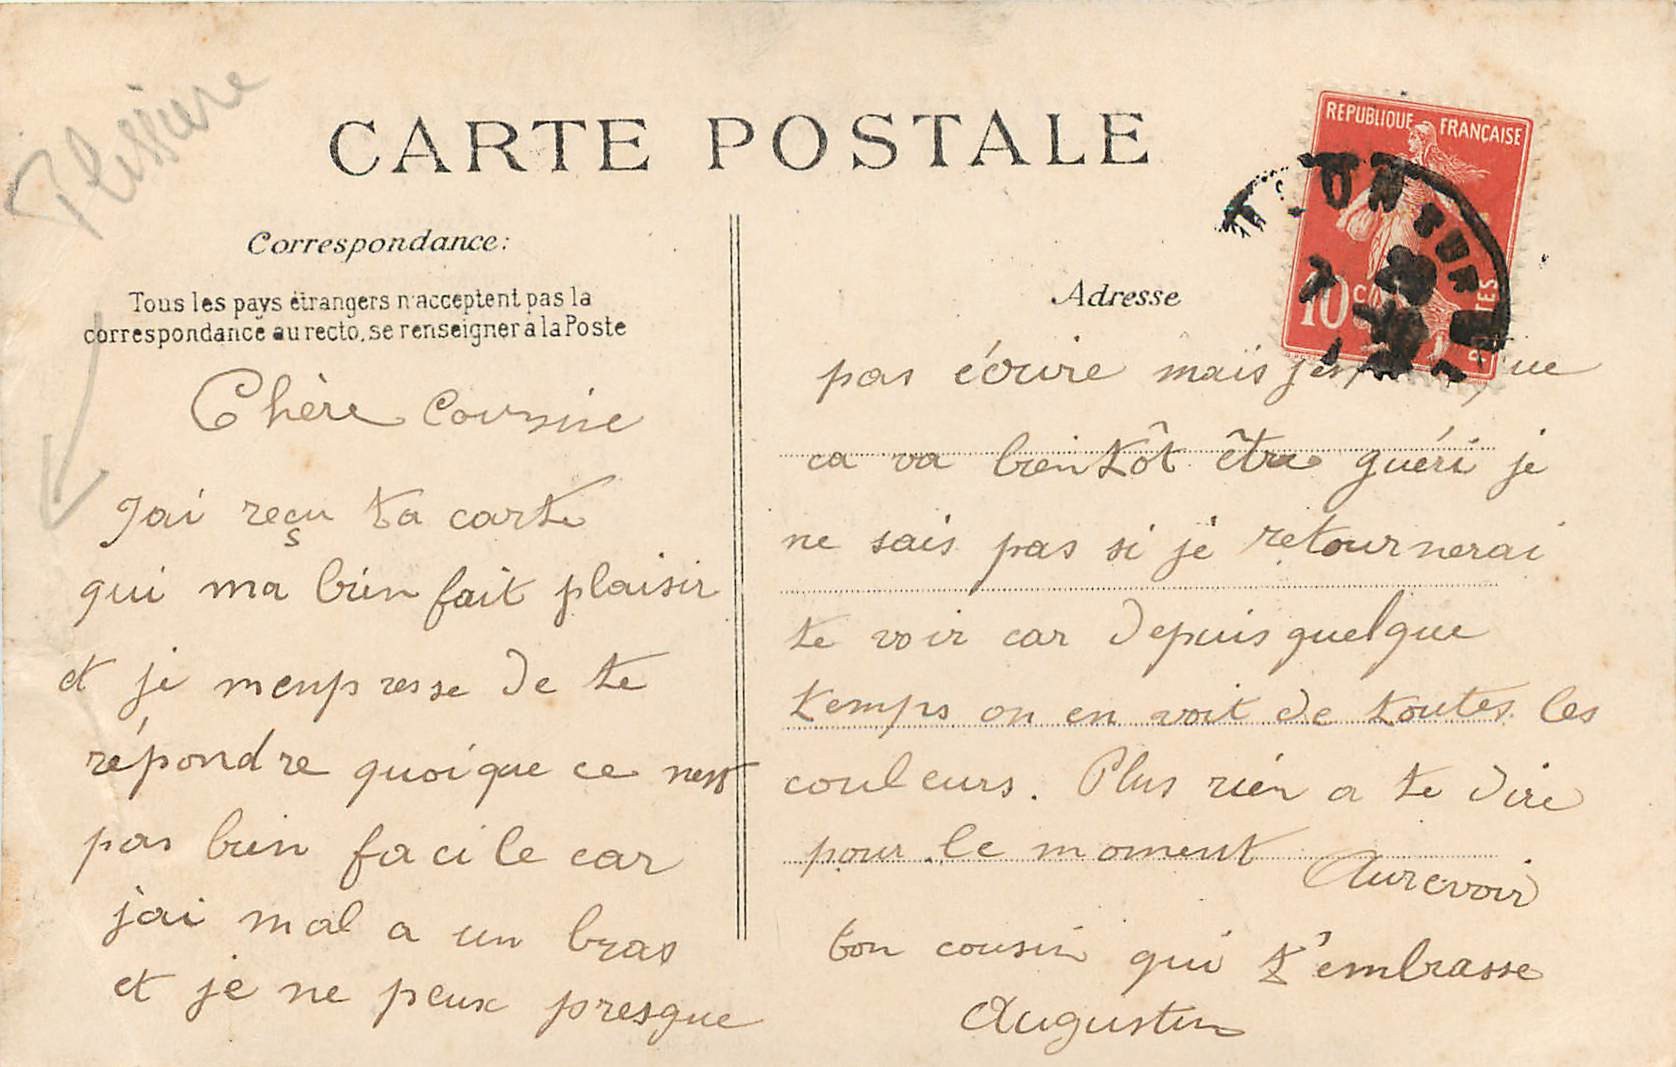 Plissure
CARTE POSTALE
Correspondance:
Tous les pays étrangers n'acceptent pas la
correspondance au recto, se renseigner à la Poste
Chère Cousine
Jai reçu ta carte
qui ma bien fait plaisir
et je menpresse de te
répondre quoique ce nest
pas bien facile car
jai mal a un bras
et je ne peux presque
Adresse
REPUBLIQUE FRANÇAISE
10c
POSTES
pas écrire mais que
ca va bientôt être guéri je
ne sais pas si je retournerai
te voir car depuis quelque
temps on en voit de toutes les
couleurs. Plus rien a te dire
pour le moment
Aurevoir
ton cousin qui t'embrasse
Augustin